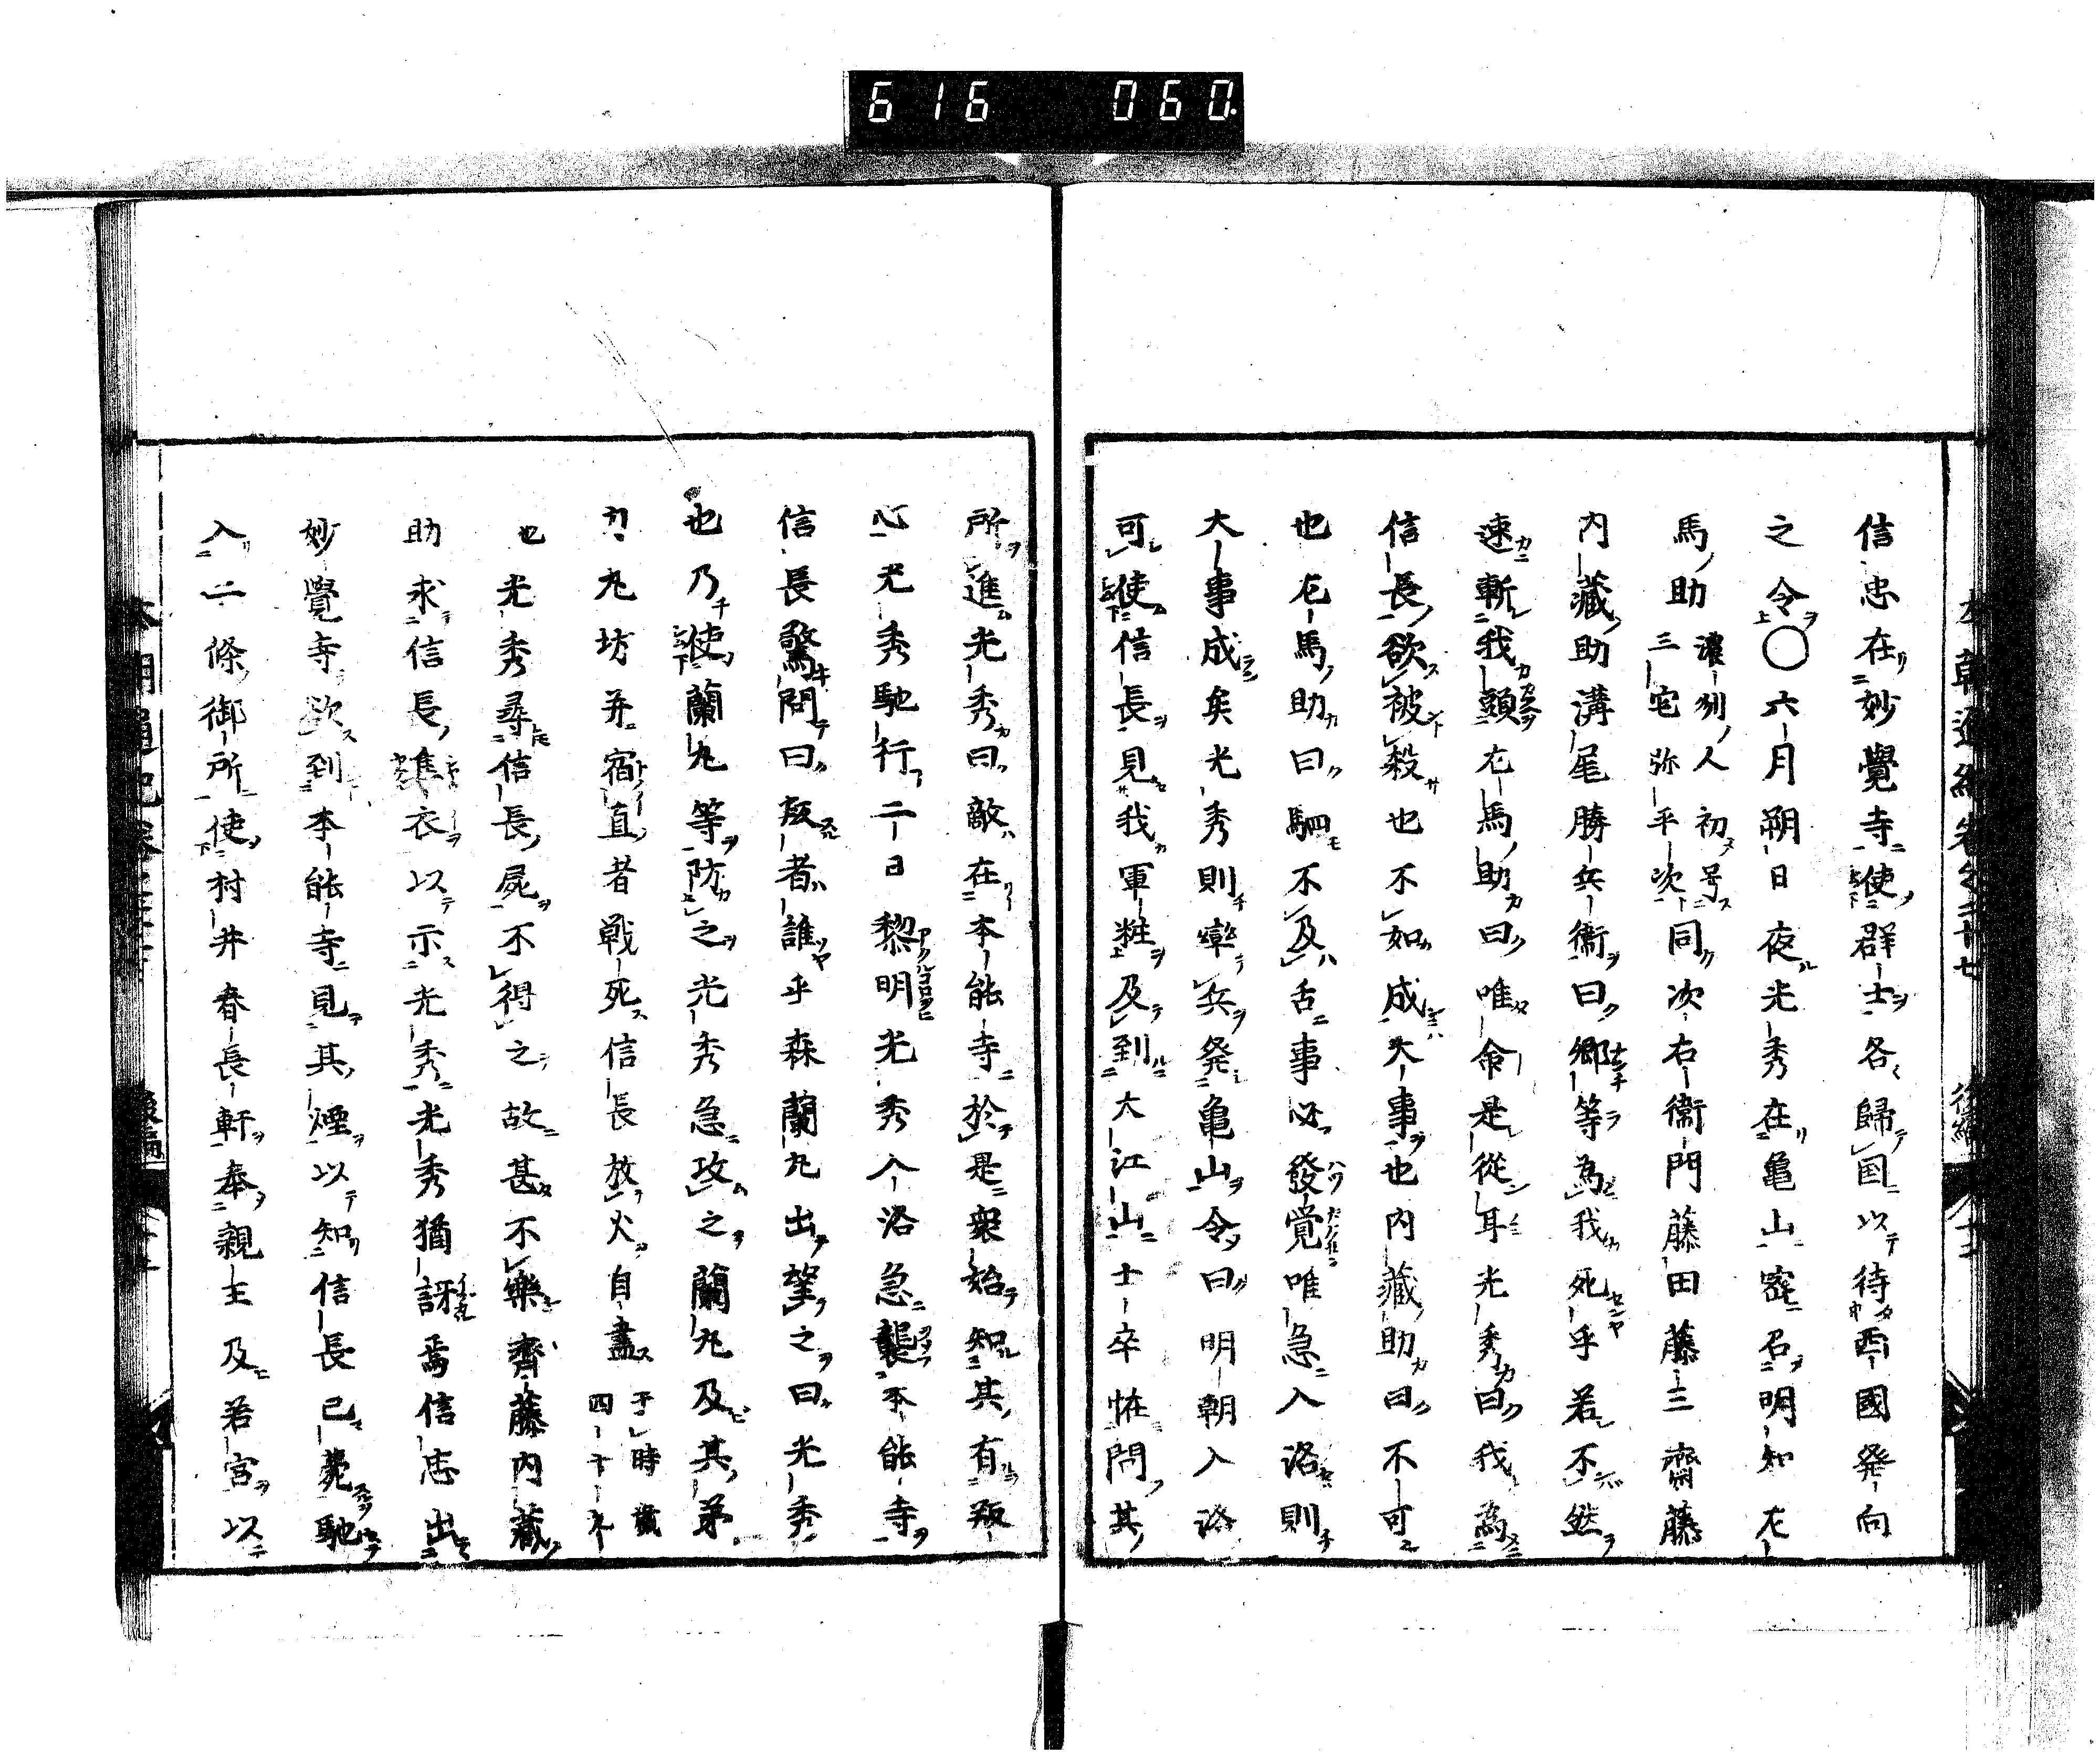 616 060
信忠在妙覺寺使群士各歸国以待西國発向
之令○六月朔日夜光秀在亀山密召明知左
馬助濃州人初号三宅弥平次同次右衛門藤田藤三齋藤
内藏助溝尾勝兵衛曰郷等為我死乎若不然
速斬我頭左馬助曰唯命是從耳光秀曰我為
信長欲被殺也不如成大事也内藏助曰不可
也左馬助曰駟不及舌事必發覚唯急入洛則
大事成矣光秀則率兵発亀山令曰明朝入洛
可使信長見我軍粧及到大江山士卒恠問其
所進光秀曰敵在本能寺於是衆始知其有叛
心光秀馳行二日黎明光秀入洛急襲本能寺
信長驚問曰叛者誰乎森蘭丸出望之曰光秀
也乃使蘭丸等防之光秀急攻之蘭丸及其弟
力丸坊并宿直者戰死信長放火自盡于時歳四十九
也光秀尋信長屍不得之故甚不樂齊藤内藏
助求信長衣以示光秀光秀猶訝焉信忠出
妙覺寺欲到本能寺見其煙以知信長已薨馳
入二條御所使村井春長軒奉親王及若宮以